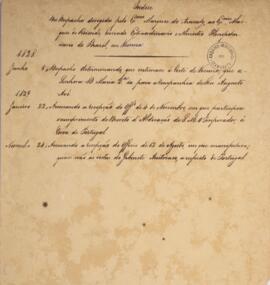 Indice
Do Despacho dirigido pelo Exmo Marquez de Aracaty, ao Exmo Mar-
quez de Rezende, Enviado Extraordinario e Ministro Plenipoten-
ciario do Brasil, em Vienna
1828
Junho Despacho determinando que intimasse á Corte de Vienna, que a
Senhora D. Maria 2ª ia para a companhia do Seu Augusto
Avô
1829
Janeiro 22, Accusando a recepção do Offº de 6 de Novembro, em que participou
cumprimento do Decreto d'Abdicação de S. M. o Imperador, á
Coroa de Portugal
24, Accusando a recepção do Officio de 13 de Agosto, em que
quaes são as vistas do Gabinete Austriaco, a respeito de Portugal